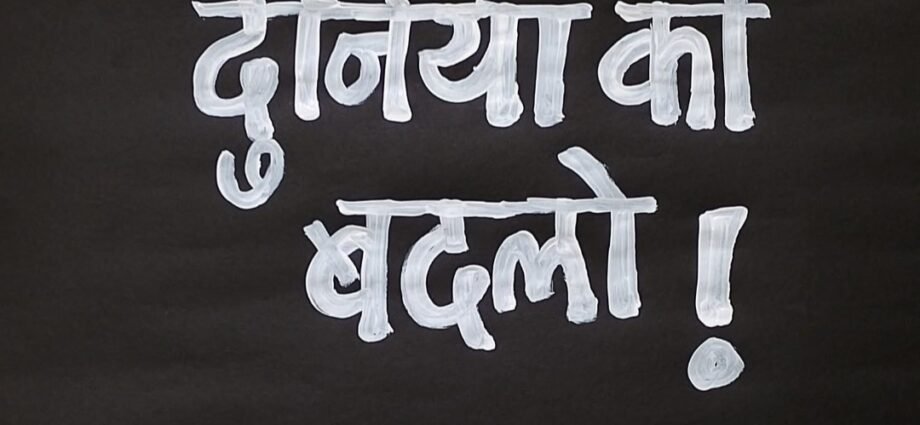 दुनिया को
बदलो!